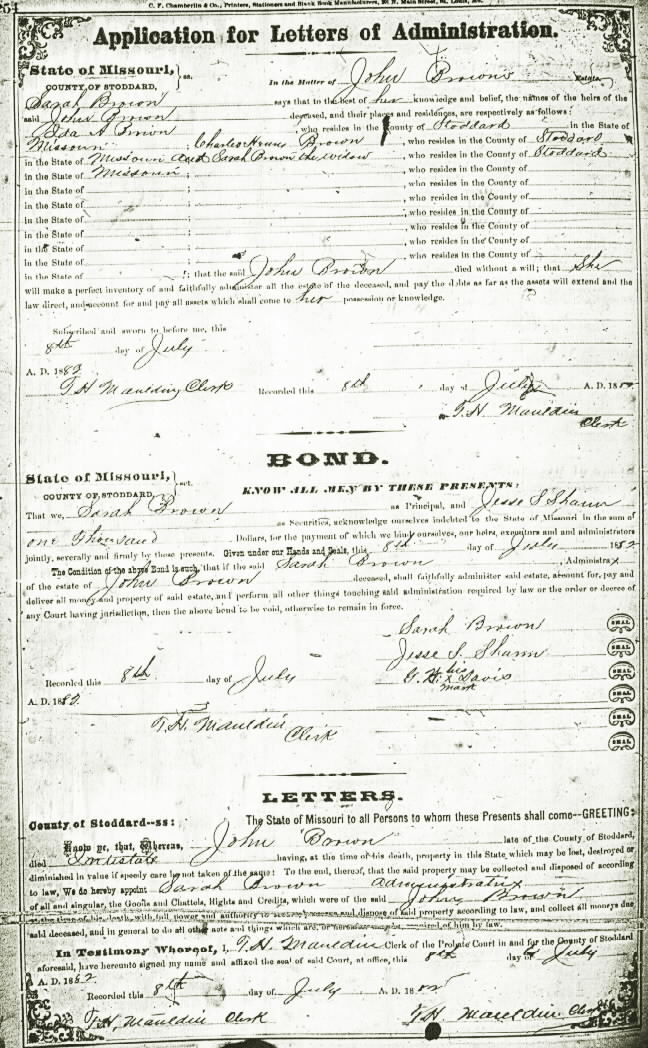 254
C. F. Chamberlin & Co., Printers, Stationers and Blank Book Manufacturers, N. Main Street, St. Louis, Mo.
Application for Letters of Administration.
State of Missouri, } ss.
COUNTY OF STODDARD,
In the Matter of John Browns Estate,
Sarah Brown says that to the best of her knowledge and belief, the names of the heirs of the
said John Brown deceased, and their places and residences, are respectively as follows:
Ida A. Brown, who resides in the County of Stoddard in the State of
Missouri; Charles Brown, who resides in the County of Stoddard
in the State of Missouri and Sarah Brown the widow, who resides in the County of Stoddard
in the State of Missouri; , who resides in the County of
in the State of ; , who resides in the County of
in the State of ; , who resides in the County of
in the State of ; , who resides in the County of
in the State of ; , who resides in the County of
in the State of ; , who resides in the County of
in the State of ; , who resides in the County of
in the State of ; that the said John Brown died without a will; that She
will make a perfect inventory of and faithfully administer all the estate of the deceased, and pay the debts as far as the assets will extend and the
law direct, and account for and pay all assets which shall come to her possession or knowledge.
Subscribed and sworn to before me, this
8th day of July
A. D. 1882
T. H. Mauldin Clerk
Recorded this 8th day of July A. D. 1882
T. H. Mauldin
Clerk
BOND.
State of Missouri, } sct.
COUNTY OF STODDARD,
KNOW ALL MEN BY THESE PRESENTS:
That we, Sarah Brown as Principal, and Jesse S Shann
as Securities, acknowledge ourselves indebted to the State of Missouri in the sum of
one thousand Dollars, for the payment of which we bind ourselves, our heirs, executors and and administrators
jointly, severally and firmly by these presents. Given under our Hands and Seals, this 8th day of July 1882
The Condition of the above Bond is such, that if the said Sarah Brown, Administrax
of the estate of John Brown deceased, shall faithfully administer said estate, account for, pay and
deliver all money and property of said estate, and perform all other things touching said administration required by law or the order or decree of
any Court having jurisdiction, then the above bond to be void, otherwise to remain in force.
Sarah Brown SEAL
Jesse S. Shann SEAL
G. H. his x mark Davis SEAL
SEAL
SEAL
SEAL
Recorded this 8th day of July
A. D. 1882
T. H. Mauldin
Clerk
LETTERS.
County of Stoddard--ss: The State of Missouri to all Persons to whom these Presents shall come--GREETING:
Know ye, that, Whereas, John Brown late of the County of Stoddard,
died Intestate having, at the time of his death, property in this State, which may be lost, destroyed or
diminished in value if speedy care be not taken of the same: To the end, thereof, that the said property may be collected and disposed of according
to law, We do hereby appoint Sarah Brown administratrix
of all and singular, the Goods and Chattels, Rights and Credits, which were of the said John Brown
at the time of his death, with full power and authority to and dispose of said property according to law, and collect all moneys due
said deceased, and in general to do all other acts and things which are, or hereafter may be, required of him by law.
In Testimony Whereof, I, T. H. Mauldin Clerk of the Probate Court in and for the County of Stoddard
aforesaid, have hereunto signed my name and affixed the seal of said Court, at office, this 8th day of July
A. D. 1882
Recorded this 8th day of July A. D. 1882
T. H. Mauldin Clerk
T. H. Mauldin Clerk